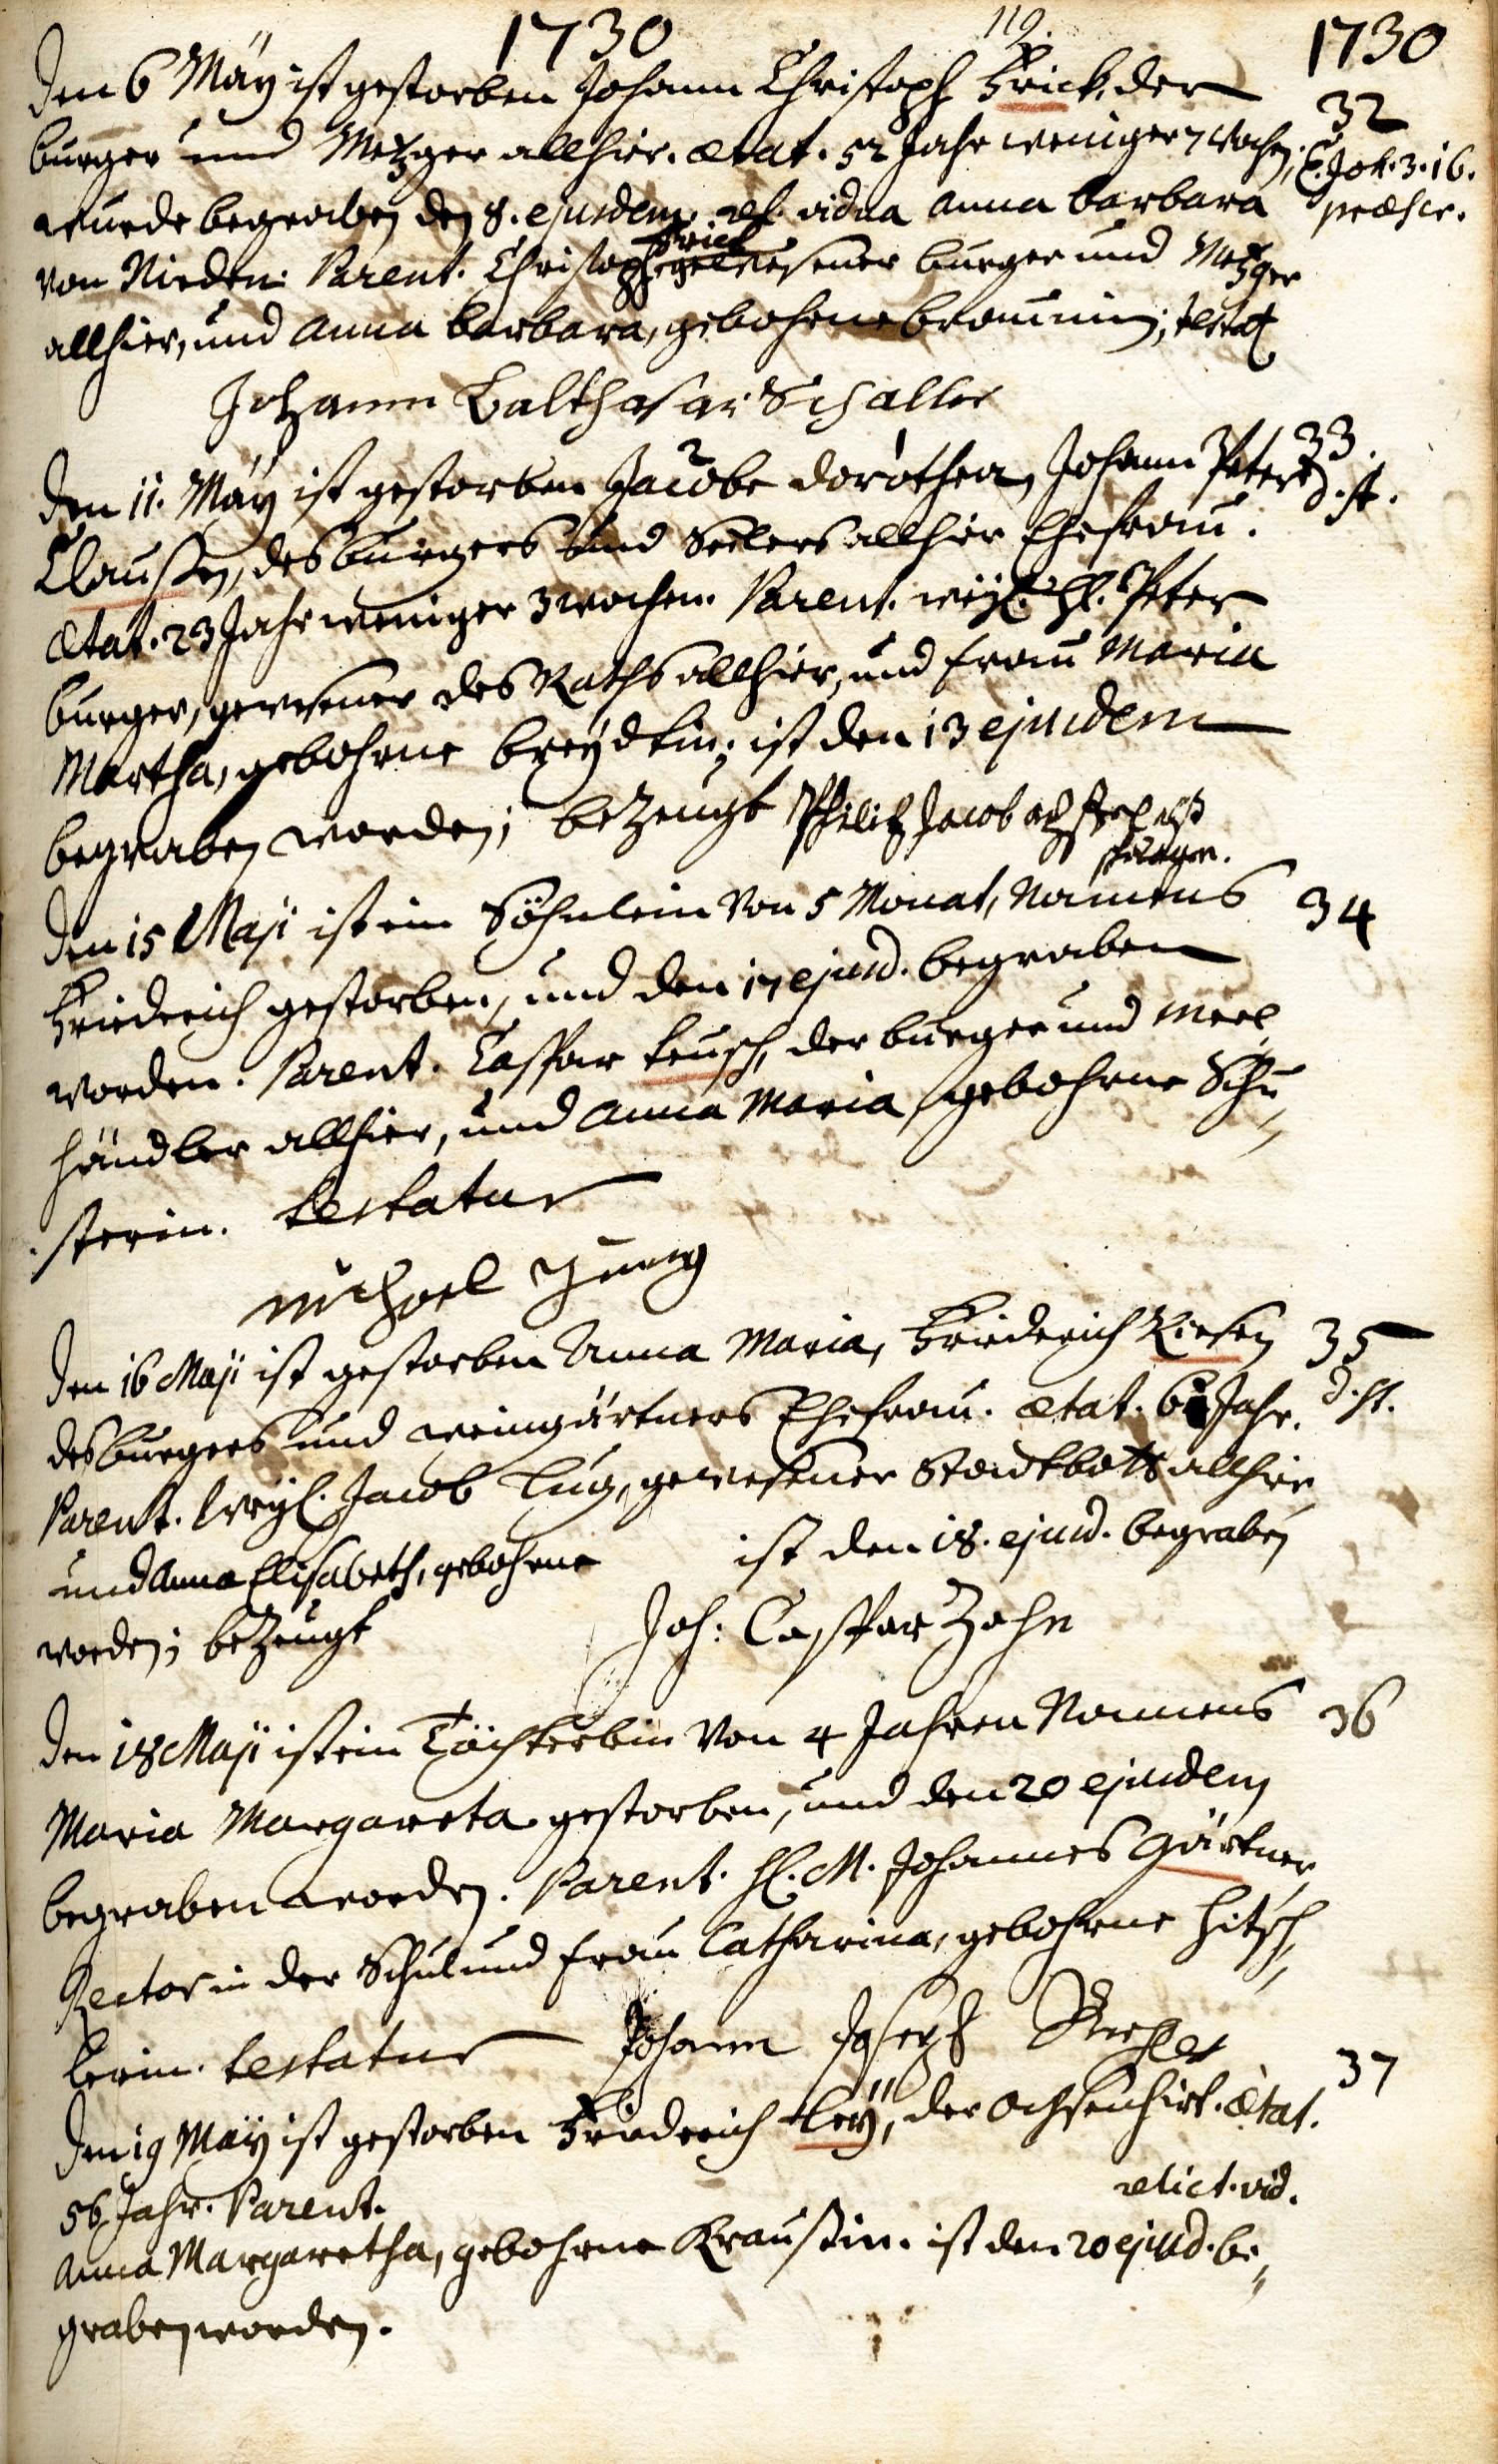 1730 119. 1730
Den 6 Maÿ ist gestorben Johann Christoph Frick, der
burger und Metzger allhier. ætat. 52 Jahr weniger 7 Wochen, 32
E. Joh. 3. 16.
wurde begraben den 8. ejusdem. rel. vidua Anna Barbara præscr.
Frick
von Nieden. Parent. Christoph gewesener burger und Metzger
allhier, und Anna Barbara, gebohrne Braunin; testat
Johann Balthasar Schaller
Den 11. Maÿ ist gestorben Jacobe Dorothea, Johann Peter 33.
Claußen, des burgers und Seilers allhier Ehefrau. d. st.
ætat. 23 Jahr weniger 3 wochen. Parent. weÿl. H. Peter
burger, gewesener des Raths allhier, und Frau Maria
Martha, gebohrne ist den 13 ejusdem
begraben worden; bezeugt Philip Jacob
Den 15 Maji ist ein Söhnlein von 5 Monat, Namens 34
Friederich gestorben, und den 17 ejusd. begraben
worden. Parent. Caspar Leusch, der burger und Meel
händler allhier, und Anna Maria, gebohrne Schu„
sterin. testatur
Michael Jung
Den 16 Maji ist gestorben Anna Maria, Friederich Riesen 35
des burgers und weingärtners Ehefrau. ætat. Jahr. d. st.
Parent. weÿl. Jacob Lug, gewesener Stadtbott allhier
und Anna Elisabeth, gebohrne ist den 18. ejusd. begraben
worden; bezeugt Joh: Caspar Zahn
Den 18 Maji ist ein Töchterlein von 4 Jahren Namens 36
Maria Margareta gestorben, und den 20 ejusdem
begraben worden. Parent. H. M. Johannes Gärtner,
Rector in der Schul und Frau Catharina, gebohrne Hitsch„
lerin. testatur Johann Joseph
Den 19 Maÿ ist gestorben Friederich Leÿ, der Ochsenhirt. Ætat. 37
56 Jahr. Parent. relict. vid.
Anna Margaretha, gebohrne Kraußin. ist den 20 ejusd. be„
graben worden.